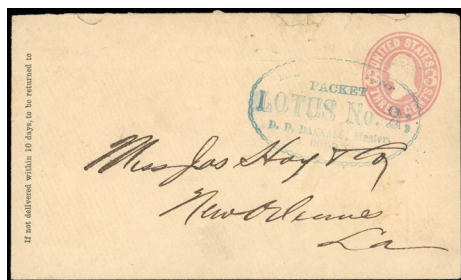 If not delivered within 10 days, to be returned to
UNITED STATES
THREE CENTS
PACKET
LOTUS No. 2,
D. D. Master,
Jas Hoy & Co
New Orleans
La